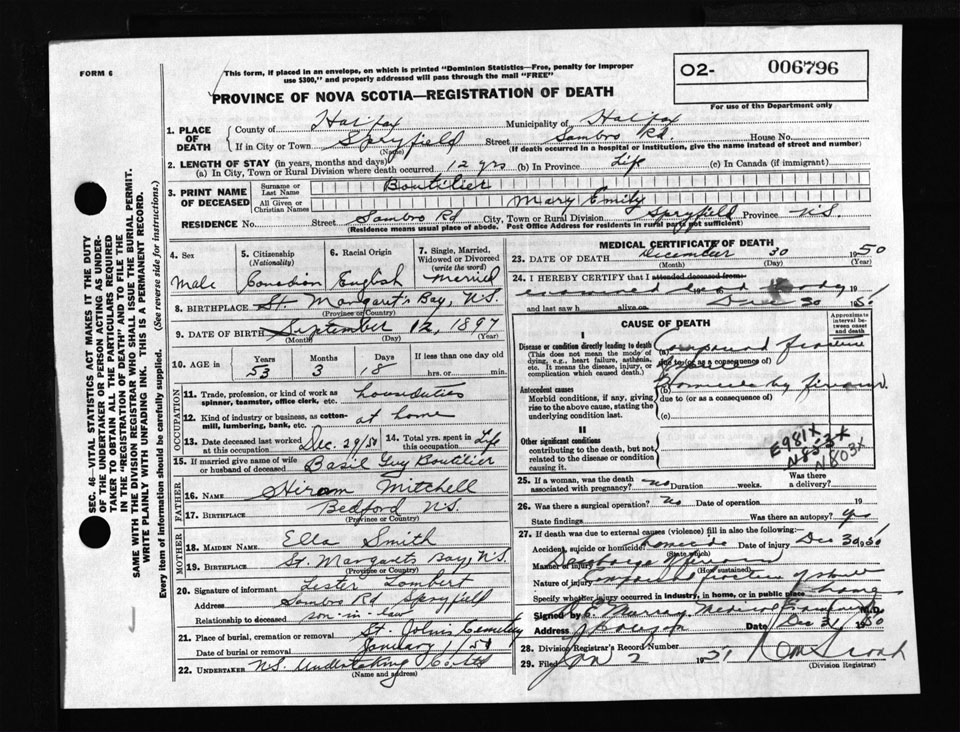 FORM 6
This form, if placed in an envelope, on which is printed "Dominion Statistics—Free, penalty for improper
use $300," and properly addressed will pass through the mail "FREE"
02- 006796
For use of the Department only
PROVINCE OF NOVA SCOTIA—REGISTRATION OF DEATH
1. PLACE OF DEATH
County of Halifax Municipality of Halifax
If in City or Town Spryfield Street Sambro Rd. House No.
(Name) (If death occurred in a hospital or institution, give the name instead of street and number)
2. LENGTH OF STAY (in years, months and days)
(a) In City, Town or Rural Division where death occurred 12 yrs (b) In Province Life (c) In Canada (if immigrant)
3. PRINT NAME OF DECEASED
Surname or Last Name Boutilier
All Given or Christian Names Mary Emily
RESIDENCE No. Street Sambro Rd City, Town or Rural Division Spryfield Province N.S.
(Residence means usual place of abode. Post Office Address for residents in rural parts not sufficient)
SEC. 46—VITAL STATISTICS ACT MAKES IT THE DUTY
OF THE UNDERTAKER OR PERSON ACTING AS UNDER-
TAKER TO OBTAIN ALL THE PARTICULARS REQUIRED
IN THE "REGISTRATION OF DEATH" AND TO FILE THE
SAME WITH THE DIVISION REGISTRAR WHO SHALL ISSUE THE BURIAL PERMIT.
WRITE PLAINLY WITH UNFADING INK. THIS IS A PERMANENT RECORD.
Every item of information should be carefully supplied. (See reverse side for instructions.)
4. Sex 5. Citizenship (Nationality) 6. Racial Origin 7. Single, Married, Widowed or Divorced (write the word)
Male Canadian English Married
8. BIRTHPLACE St. Margaret's Bay, N.S.
(Province or Country)
9. DATE OF BIRTH September 12, 1897
(Month) (Day) (Year)
10. AGE in Years Months Days If less than one day old
53 3 18 hrs. or min.
OCCUPATION
11. Trade, profession, or kind of work as spinner, teamster, office clerk, etc. houseduties
12. Kind of industry or business, as cotton-mill, lumbering, bank, etc. at home
13. Date deceased last worked at this occupation Dec. 29/50 14. Total yrs. spent in this occupation Life
15. If married give name of wife or husband of deceased Basil Guy Boutilier
FATHER
16. NAME Hiram Mitchell
17. BIRTHPLACE Bedford N.S.
(Province or Country)
MOTHER
18. MAIDEN NAME Ella Smith
19. BIRTHPLACE St. Margarets Bay, N.S.
(Province or Country)
20. Signature of informant Lester Lambert
Address Sambro Rd Spryfield
Relationship to deceased son-in-law
21. Place of burial, cremation or removal St. John's Cemetery
Date of burial or removal January 1/51
22. UNDERTAKER N.S. Undertaking
(Name and address)
MEDICAL CERTIFICATE OF DEATH
23. DATE OF DEATH December 30 1950
(Month) (Day) (Year)
24. I HEREBY CERTIFY that I attended deceased from
examined body
and last saw h alive on Dec 30 1950
CAUSE OF DEATH
Approximate interval between onset and death
I
Disease or condition directly leading to death
(This does not mean the mode of dying, e.g., heart failure, asthenia, etc. It means the disease, injury, or complication which caused death.)
(a) Compound fracture
due to (or as a consequence of)
Antecedent causes
Morbid conditions, if any, giving rise to the above cause, stating the underlying condition last.
(b) Homicide by firearm.
due to (or as a consequence of)
(c)
II
Other significant conditions contributing to the death, but not related to the disease or condition causing it.
E981X
N803X
25. If a woman, was the death associated with pregnancy? No Duration weeks. Was there a delivery?
26. Was there a surgical operation? No Date of operation 19
State findings Was there an autopsy? Yes
27. If death was due to external causes (violence) fill in also the following:
Accident, suicide or homicide? homicide Date of injury Dec 30 1950
(State which)
Manner of injury
(How sustained)
Nature of injury compound fracture of
Specify if injury occurred in industry, in home, or in public place home
Signed by Murray Medical Examiner M.D.
Address Date Dec 31 1950
28. Division Registrar's Record Number
29. Filed Jan 2 1951
(Division Registrar)